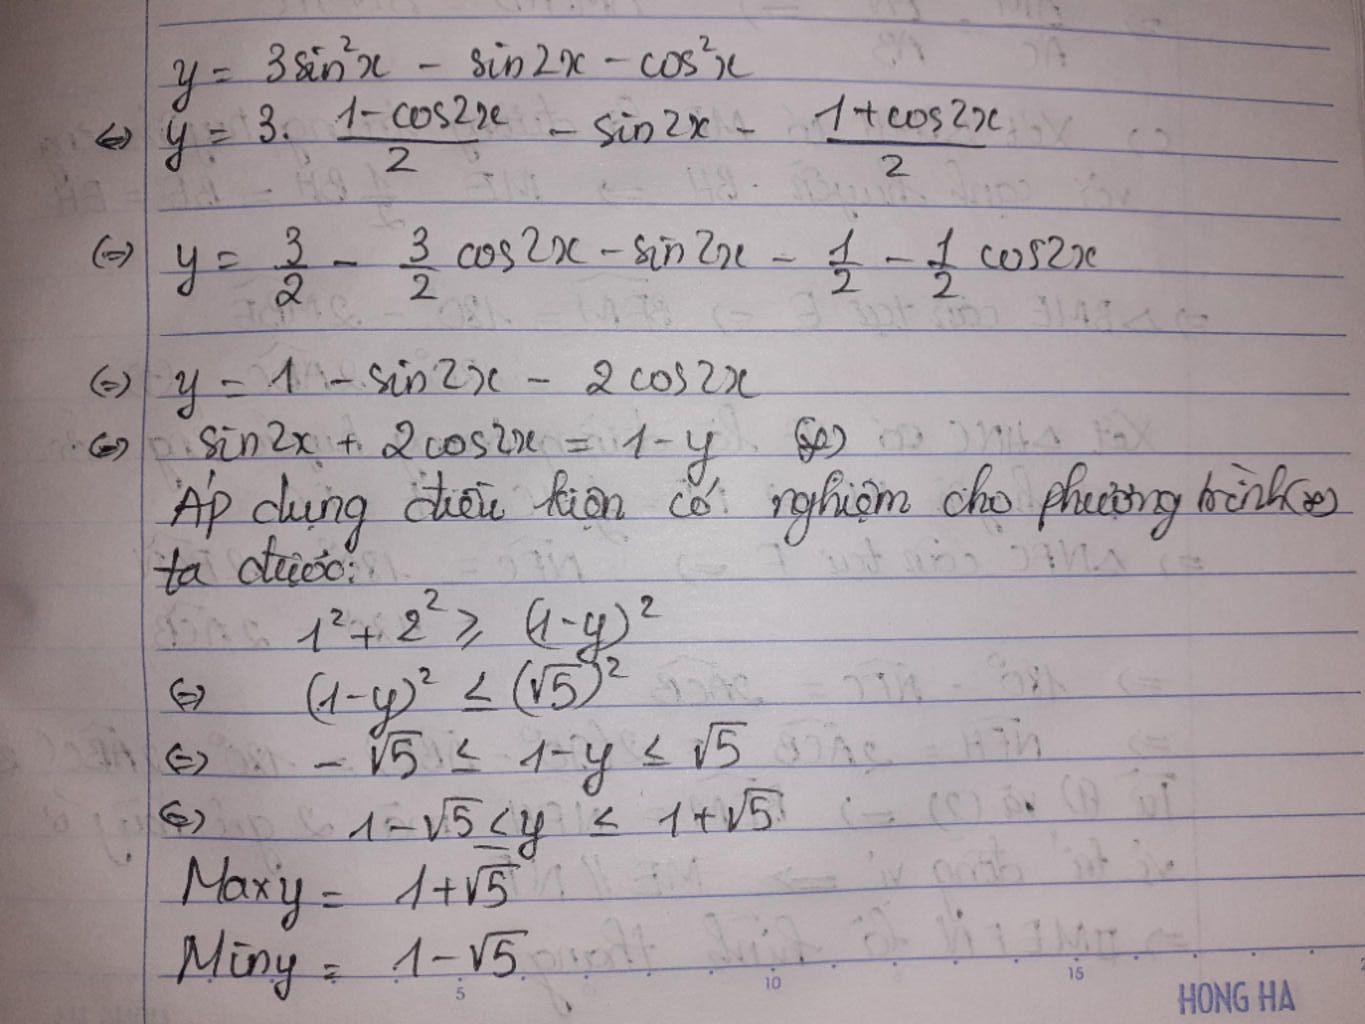 y = 3sin²x - sin2x - cos²x
⇔ y = 3. (1-cos2x)/2 - sin2x - (1+cos2x)/2
⇔ y = 3/2 - 3/2 cos2x - sin2x - 1/2 - 1/2 cos2x
⇔ y = 1 - sin2x - 2cos2x
⇔ sin2x + 2cos2x = 1-y (*)
Áp dụng điều kiện có nghiệm cho phương trình (*)
ta được:
1² + 2² ≥ (1-y)²
⇔ (1-y)² ≤ (√5)²
⇔ -√5 ≤ 1-y ≤ √5
⇔ 1-√5 ≤ y ≤ 1+√5
Max y = 1+√5
Min y = 1-√5
5 10 15
HONG HA